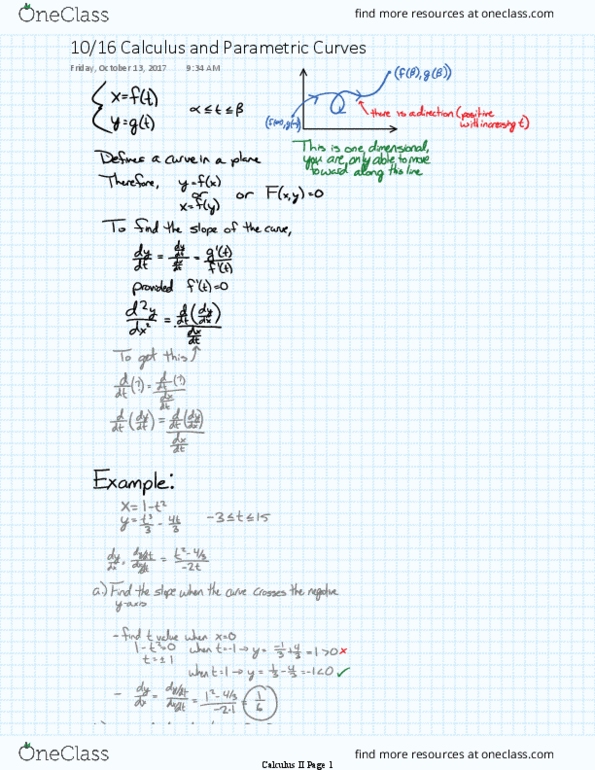 OneClass
find more resources at oneclass.com
10/16 Calculus and Parametric Curves
Friday, October 13, 2017 9:34 AM
{ x=f(t)
y=g(t)
α≤t≤β
(f(β),g(β))
there is a direction (positive
with increasing t)
This is one dimensional,
you are only able to move
toward along this line
Defines a curve in a plane
Therefore, y=f(x)
or
x=f(y)
or F(x,y)=0
To find the slope of the curve,
dy/dt = (dy/dt)/(dx/dt) = g'(t)/f'(t)
provided f'(t)=0
d²y/dx² = (d/dt(dy/dx))/(dx/dt)
To get this
d/dt(?) = (d/dt(?))/(dx/dt)
d/dt(dy/dt) = (d/dt(dy/dx))/(dx/dt)
Example:
x=1-t²
y=t³/3 - 4t/3
-3≤t≤15
dy/dx = (dy/dt)/(dx/dt) = (t²-4/3)/(-2t)
a.) Find the slope when the curve crosses the negative
y-axis
- find t value when x=0
1-t²=0 when t=-1→y= -1/3+4/3 =1>0 ×
t=±1
when t=1→y= 1/3-4/3 =-1<0 ✓
- dy/dx = (dy/dt)/(dx/dt) = (1²-4/3)/(-2·1) = 1/6
OneClass
find more resources at oneclass.com
Calculus II Page 1